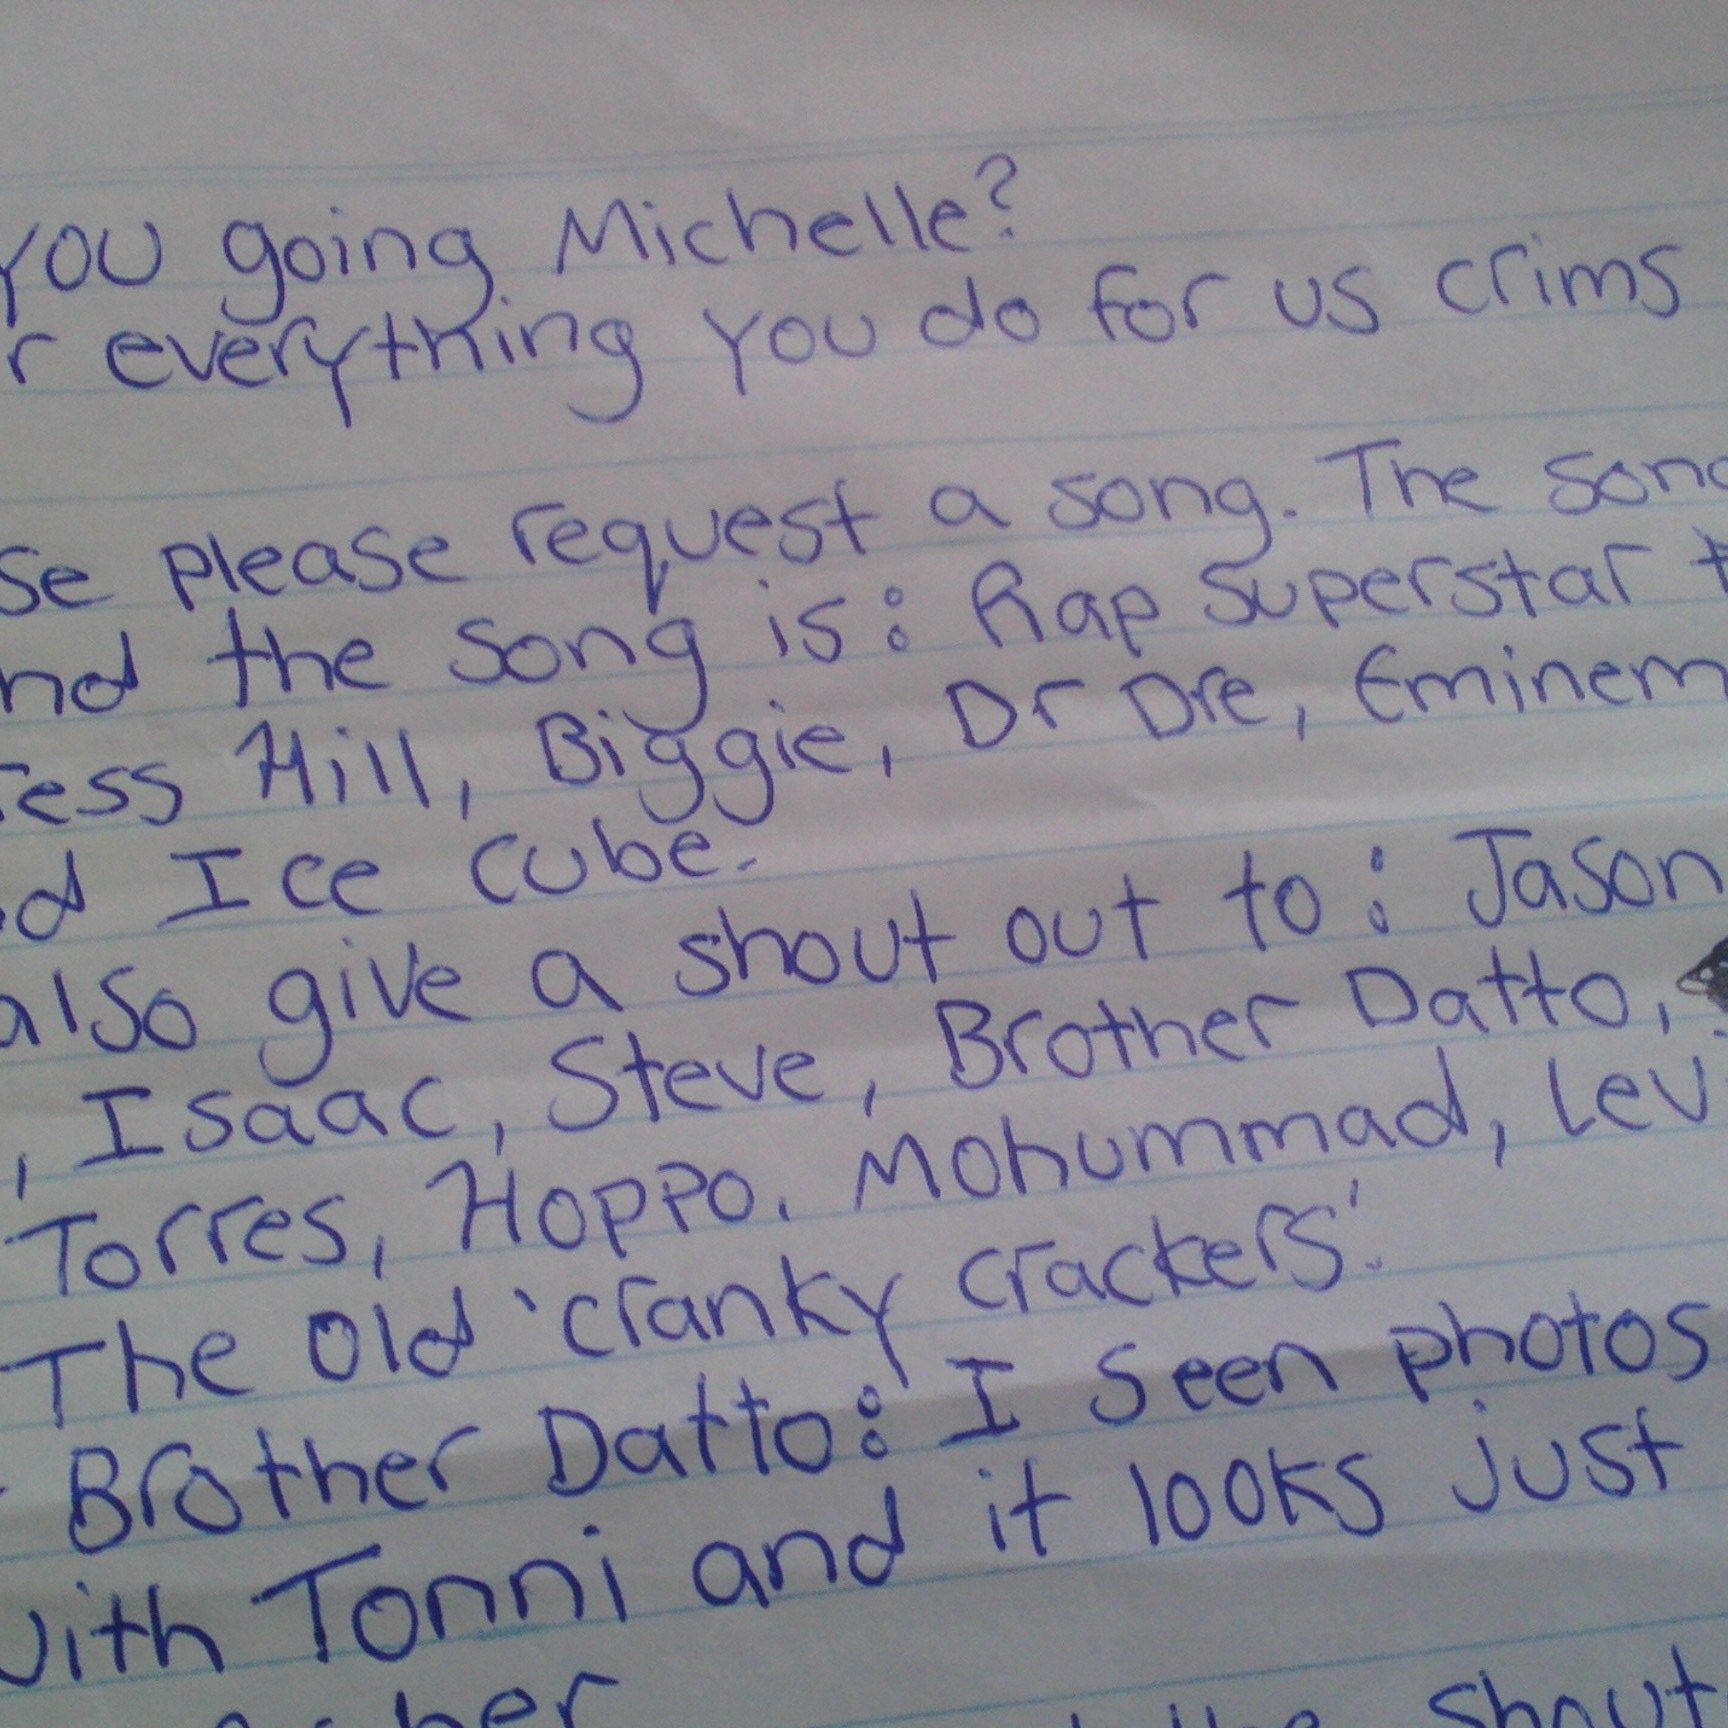 YOU going Michelle?
r everything you do for us crims
se please request a song. The song
nd the song is: Rap Superstar
ess Hill, Biggie, Dr Dre, Eminem
d Ice cube.
also give a shout out to: Jason
, Isaac, Steve, Brother Datto,
Torres, Hoppo. Mohummad, Lev
The Old 'cranky crackers'.
Brother Datto: I seen photos
with Tonni and it looks just
her the shout